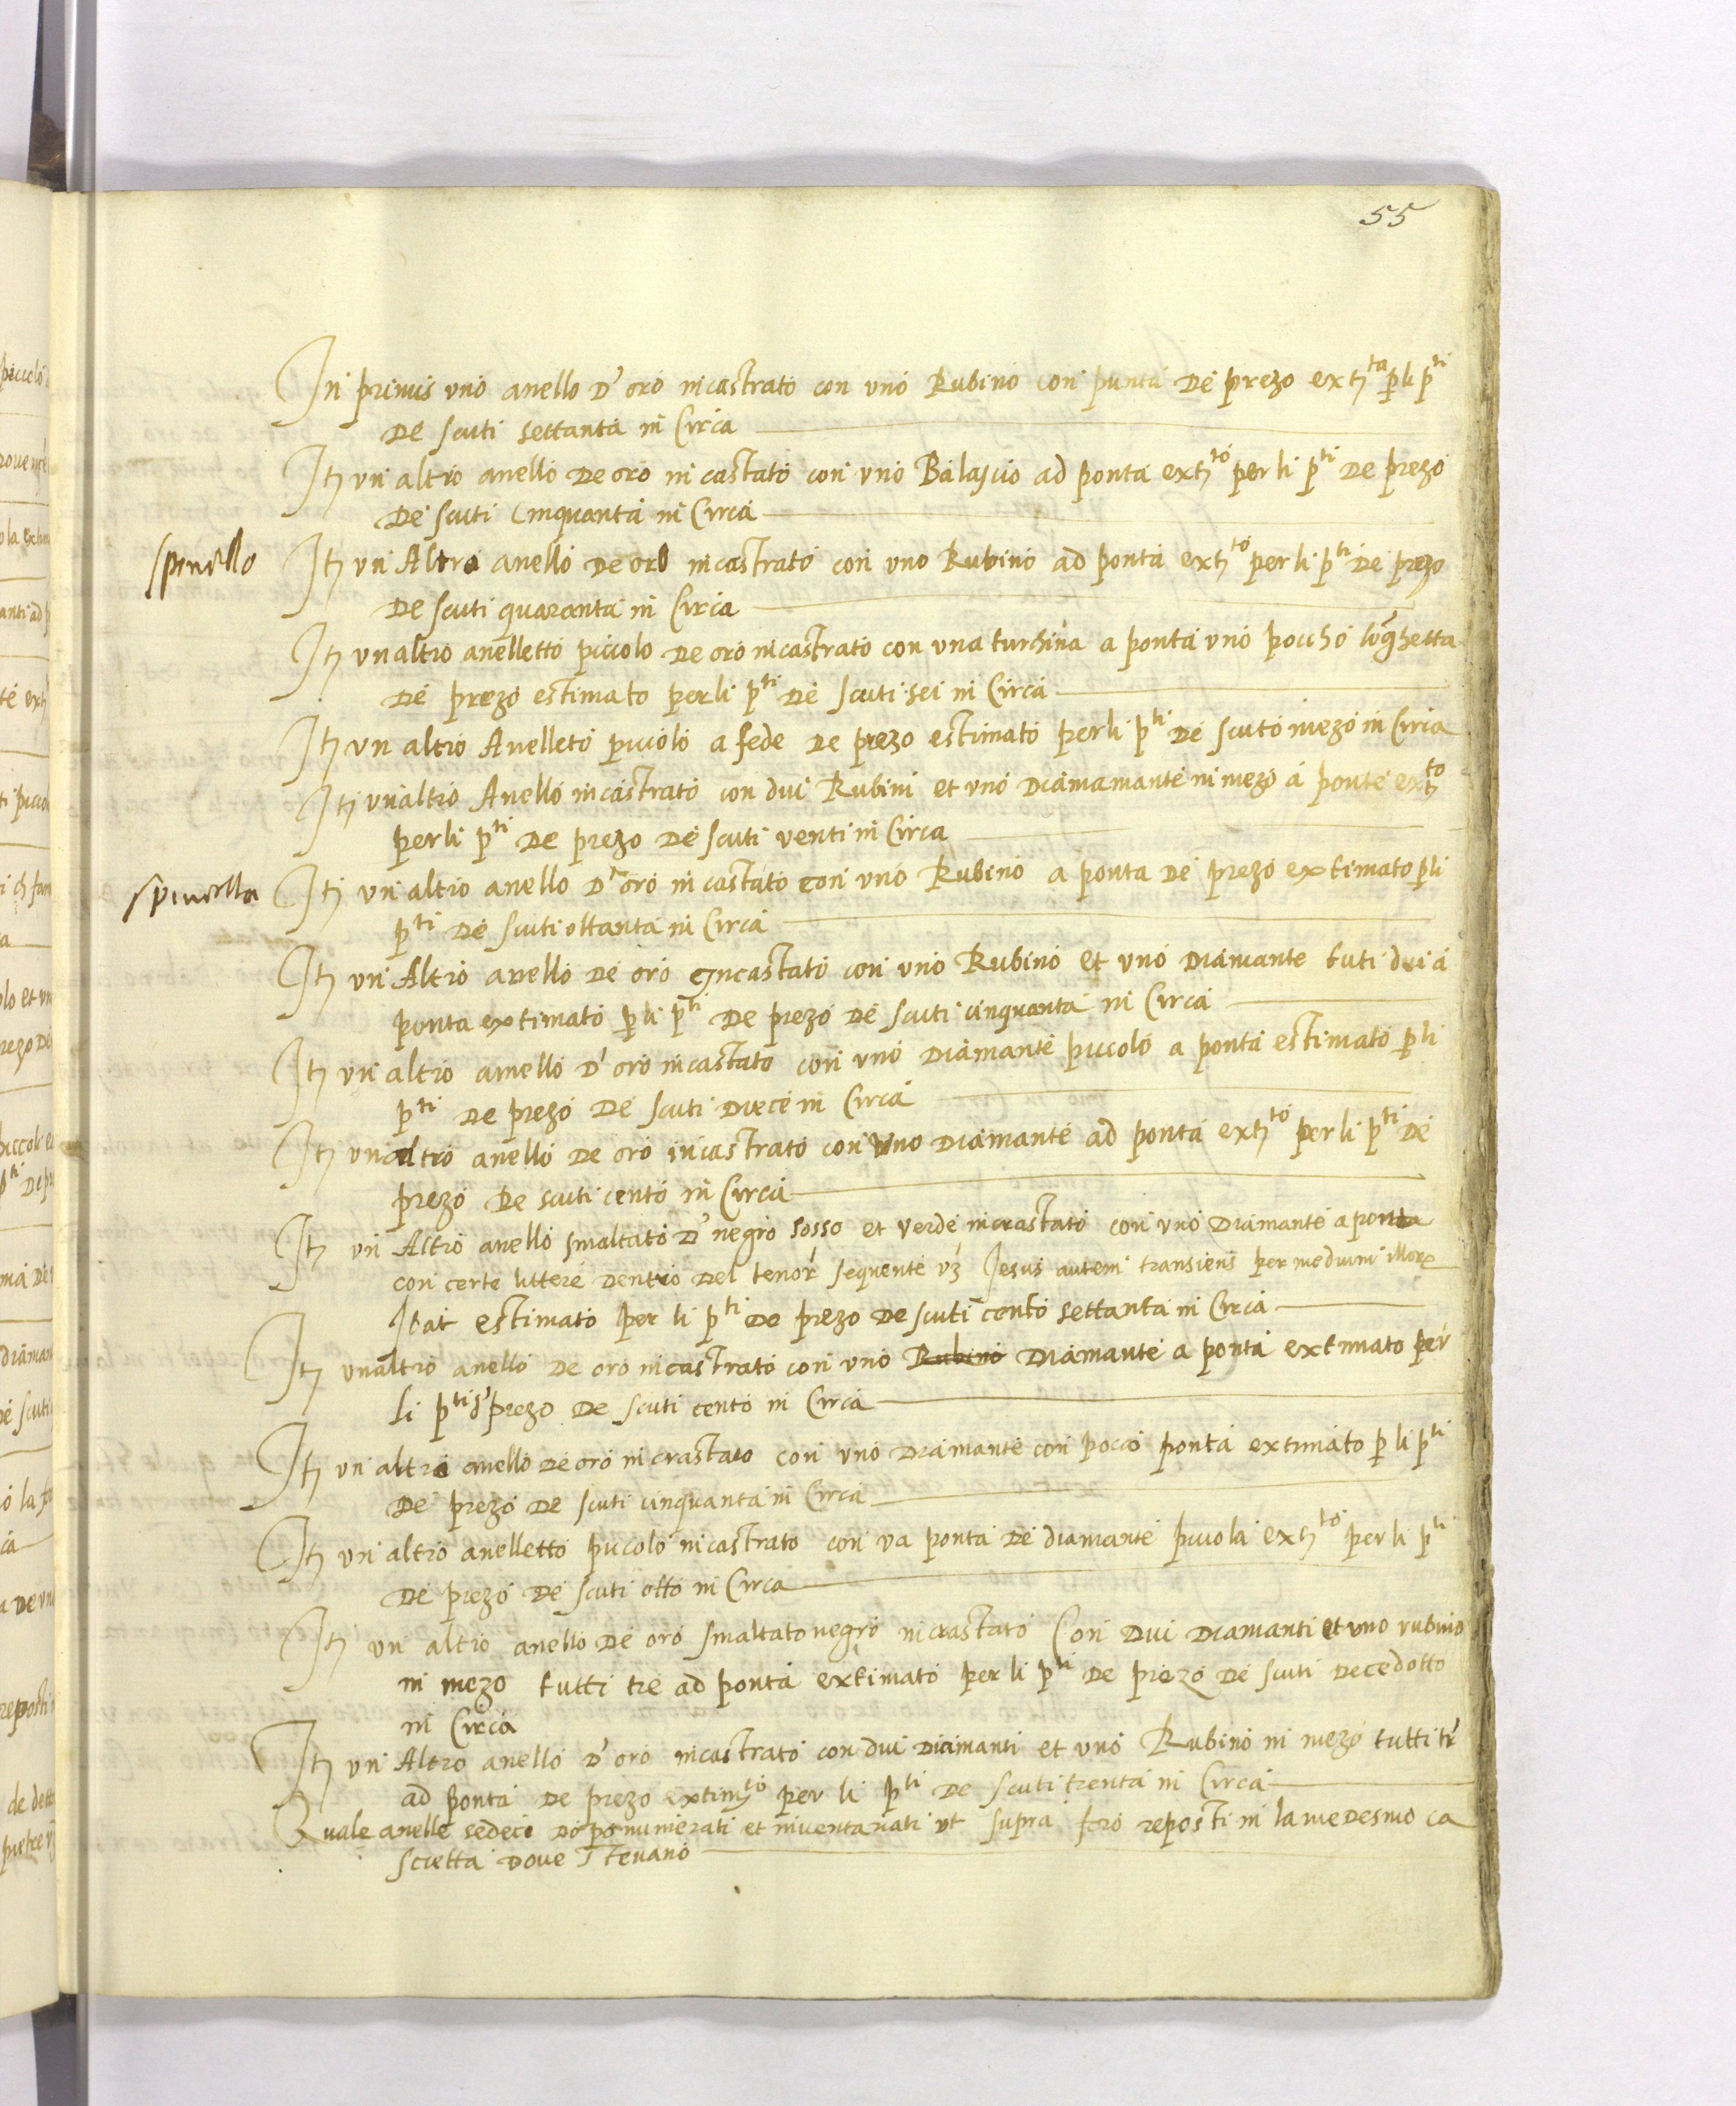 55
In primis uno anello d' oro incastrato con uno Rubino con punta de prezo ext.ta p li p.ti
de scuti settanta in Circa
It un altro anello de oro in castato con uno Balascio ad ponta ext.to per li p.ti de prezo
de scuti Cinquanta in Circa
spinello It un Altro anello de oro incastrato con uno Rubino ad ponta ext.to per li p.ti de prezo
de scuti quaranta in Circa
It un altro anelletto piccolo de oro incastrato con una turchina a ponta uno pocho longhetta
de prezo estimato per li p.ti de scuti sei in Circa
It un altro Anelleto piccolo a fede de prezo estimato per li p.ti de scuto mezo in Circa
It un altro Anello incastrato con dui Rubini et uno Diamamante in mezo a ponte ext.to
per li p.ti de prezo de scuti venti in Circa
spinella It un altro anello d' oro in castato con uno Rubino a ponta de prezo extimato p li
p.ti de scuti ottanta in Circa
It un Altro anello de oro incastato con uno Rubino et uno Diamante tuti dui a
ponta extimato p li p.ti de prezo de scuti cinquanta in Circa
It un altro anello d' oro incastato con uno Diamante piccolo a ponta estimato p li
p.ti de prezo de scuti diece in Circa
It un altro anello de oro incastrato con uno Diamante ad ponta ext.to per li p.ti de
prezo de scuti cento in Circa
It un Altro anello smaltato d' negro rosso et verde incrastato con uno Diamante a ponta
con certe littere dentro del tenor sequente vz Jesus autem transiens per medium illor
Ibat estimato per li p.ti de prezo de scuti cento settanta in Circa
It un altro anello de oro incastrato con uno Rubino Diamante a ponta extimato per
li p.ti d' prezo de scuti cento in Circa
It un altro anello de oro incrastato con uno Diamante con poco ponta extimato p li p.ti
de prezo de scuti cinquanta in Circa
It un altro anelletto piccolo incastrato con ua ponta de diamante picola ext.to per li p.ti
de prezo de scuti otto in Circa
It un altro anello de oro smaltato negro incrastato Con dui Diamanti et uno rubino
in mezo tutti tre ad ponta extimato per li p.ti de prezo de scuti decedotto
in Circa
It un Altro anello d' oro incastrato con dui Diamanti et uno Rubino in mezo tutti tr'
ad ponta de prezo extim.to per li p.ti de scuti trenta in Circa
Quale anelle sedeci dopo numerati et inventariati ut supra foro reposti in la medesmo ca
scietta dove stevano